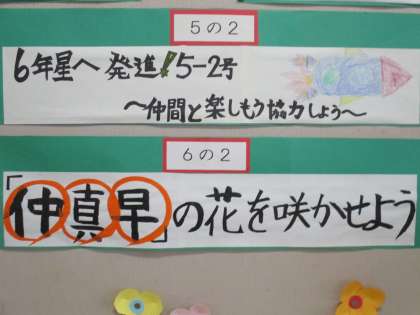 5の2
6年星へ 発進!5-2号
~仲間と楽しもう協力しよう~
6の2
「仲真早」の花を咲かせよう